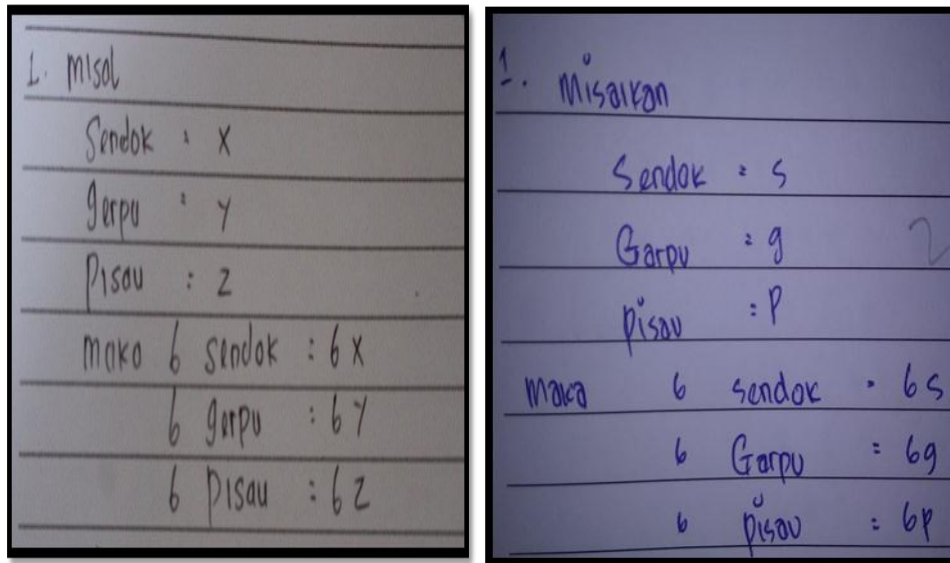 1. misal
Sendok : x
gerpu : y
Pisau : z
maka 6 sendok : 6x
6 gerpu : 6y
6 Pisau : 6z
1. Misalkan
Sendok = s
Garpu = g
Pisau = P
Maka 6 sendok = 6s
6 Garpu = 6g
6 pisau = 6p